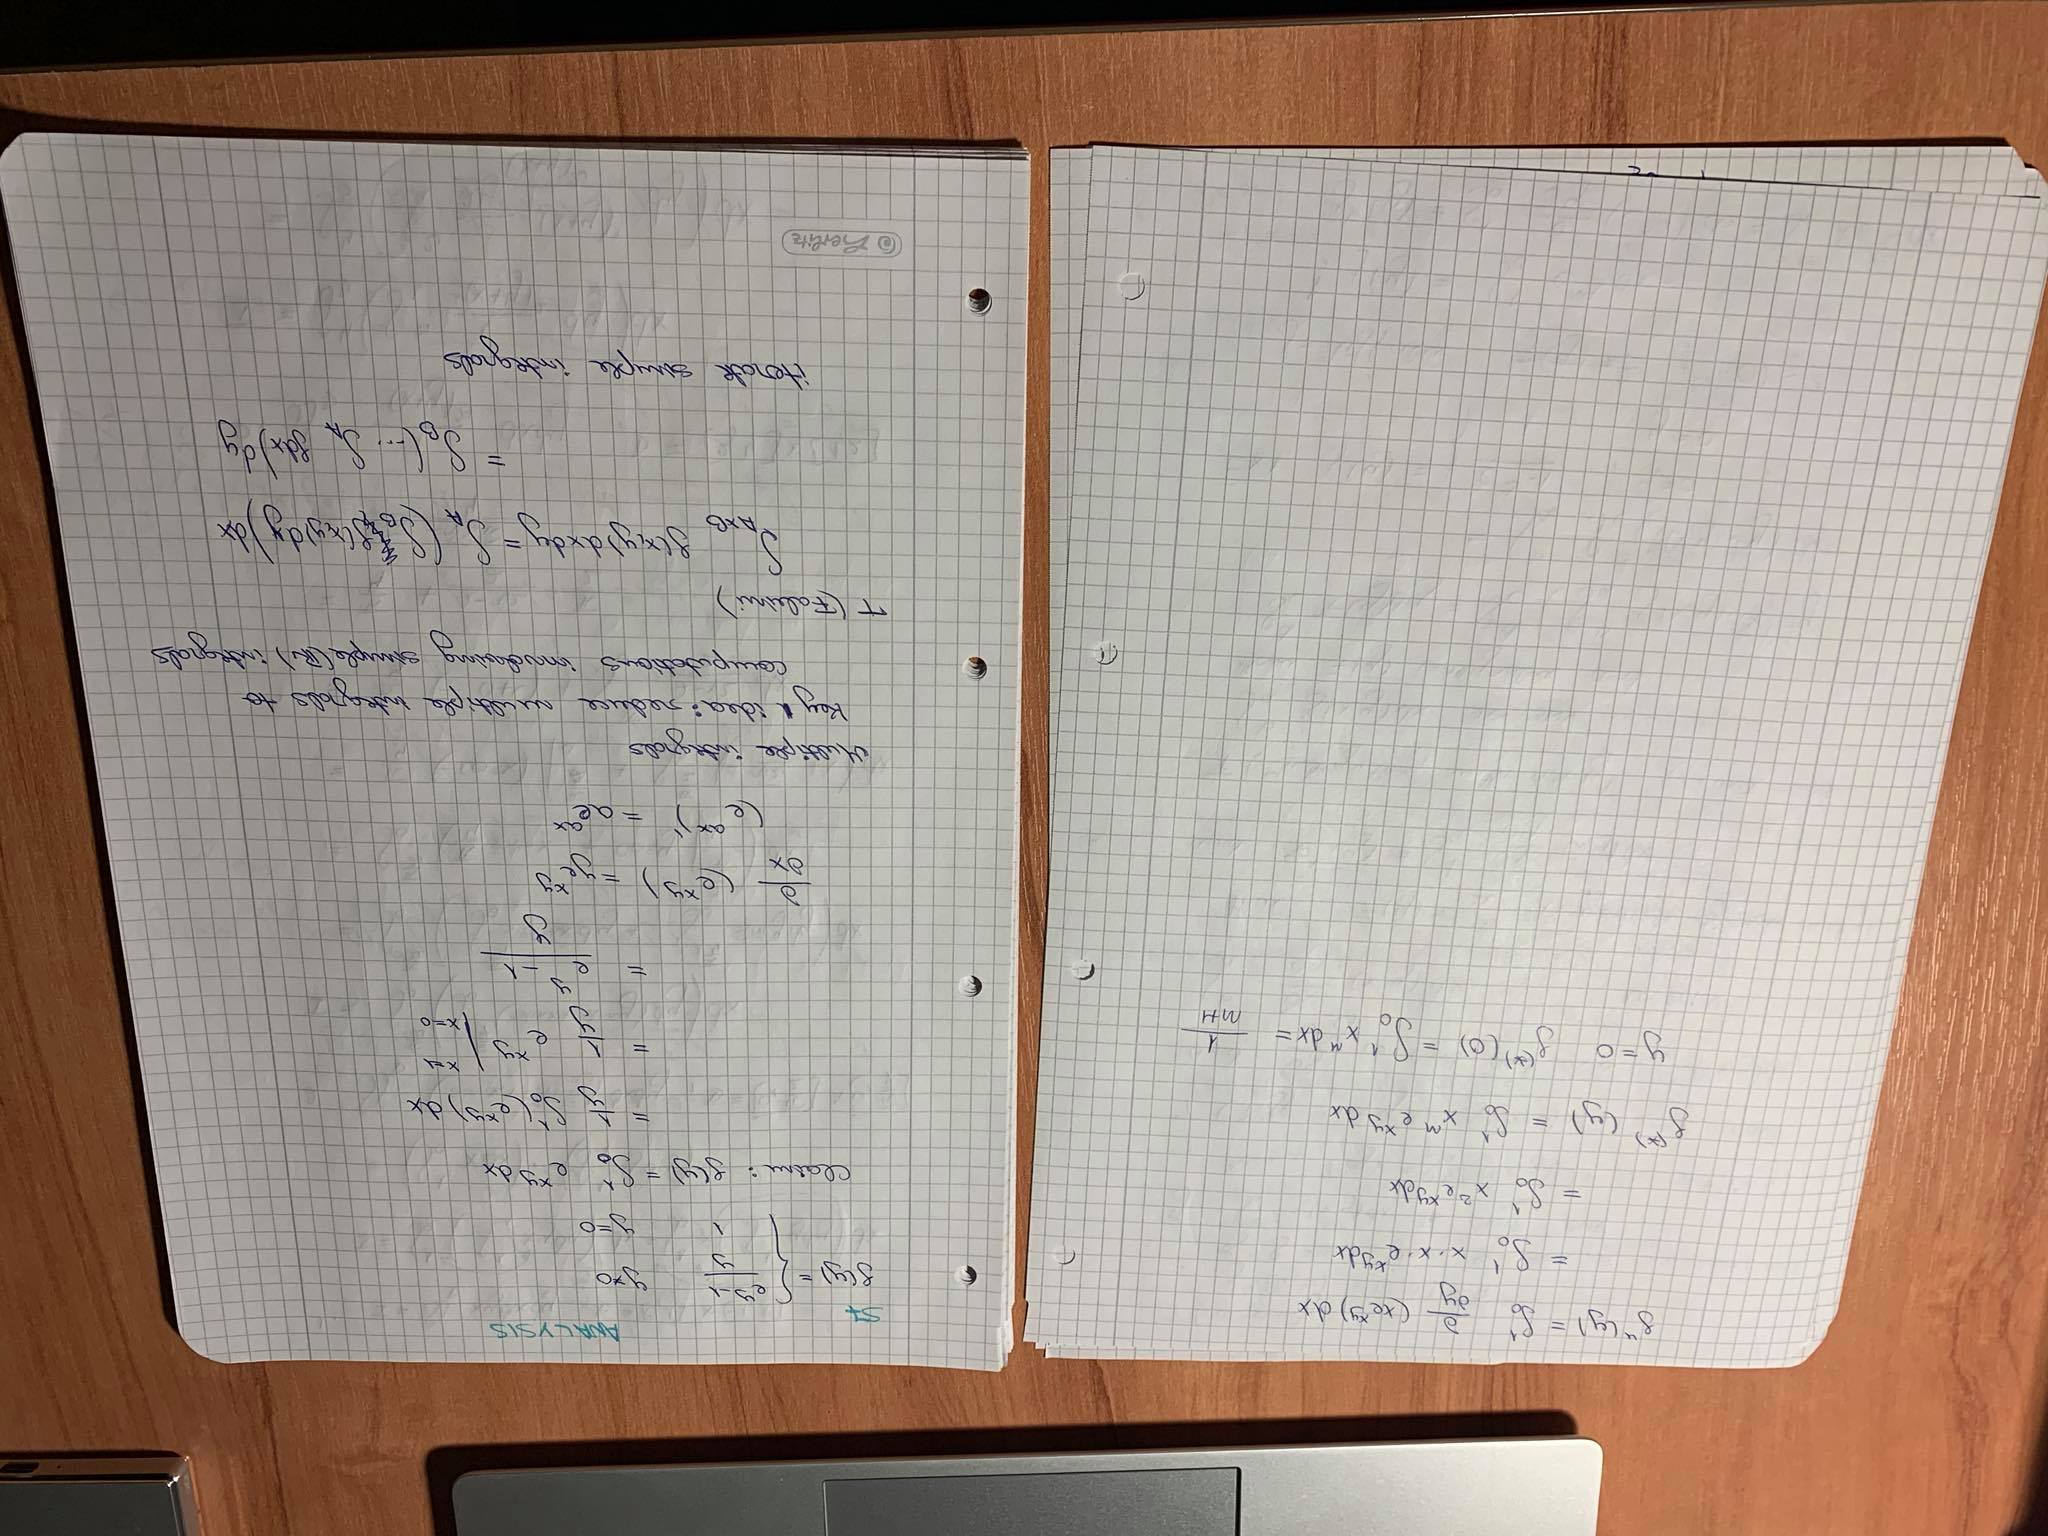 f''(y) = ∫₀¹ ∂/∂y (xe^xy) dx
= ∫₀¹ x · x · e^xy dx
= ∫₀¹ x² e^xy dx
f^(x) (y) = ∫₀¹ xⁿ e^xy dx
y=0 f^(x) (0) = ∫₀¹ xⁿ dx = 1/n+1
ANALYSIS
S7
f(y) = { e^y-1 / y y≠0
1 y=0
Claim: f(y) = ∫₀¹ e^xy dx
= 1/y ∫₀¹ (e^xy) dx
= 1/y e^xy | x=1 x=0
= e^y - 1 / y
∂/∂x (e^xy) = ye^xy
(e^ax)' = ae^ax
Multiple integrals
Key idea: reduce multiple integrals to
computations involving simple (R) integrals
T (Fubini)
∫_A×B f(x,y) dx dy = ∫_A (∫_B f(x,y) dy) dx
= ∫_B (... ∫_A f dx) dy
iterate simple integrals
Herlitz